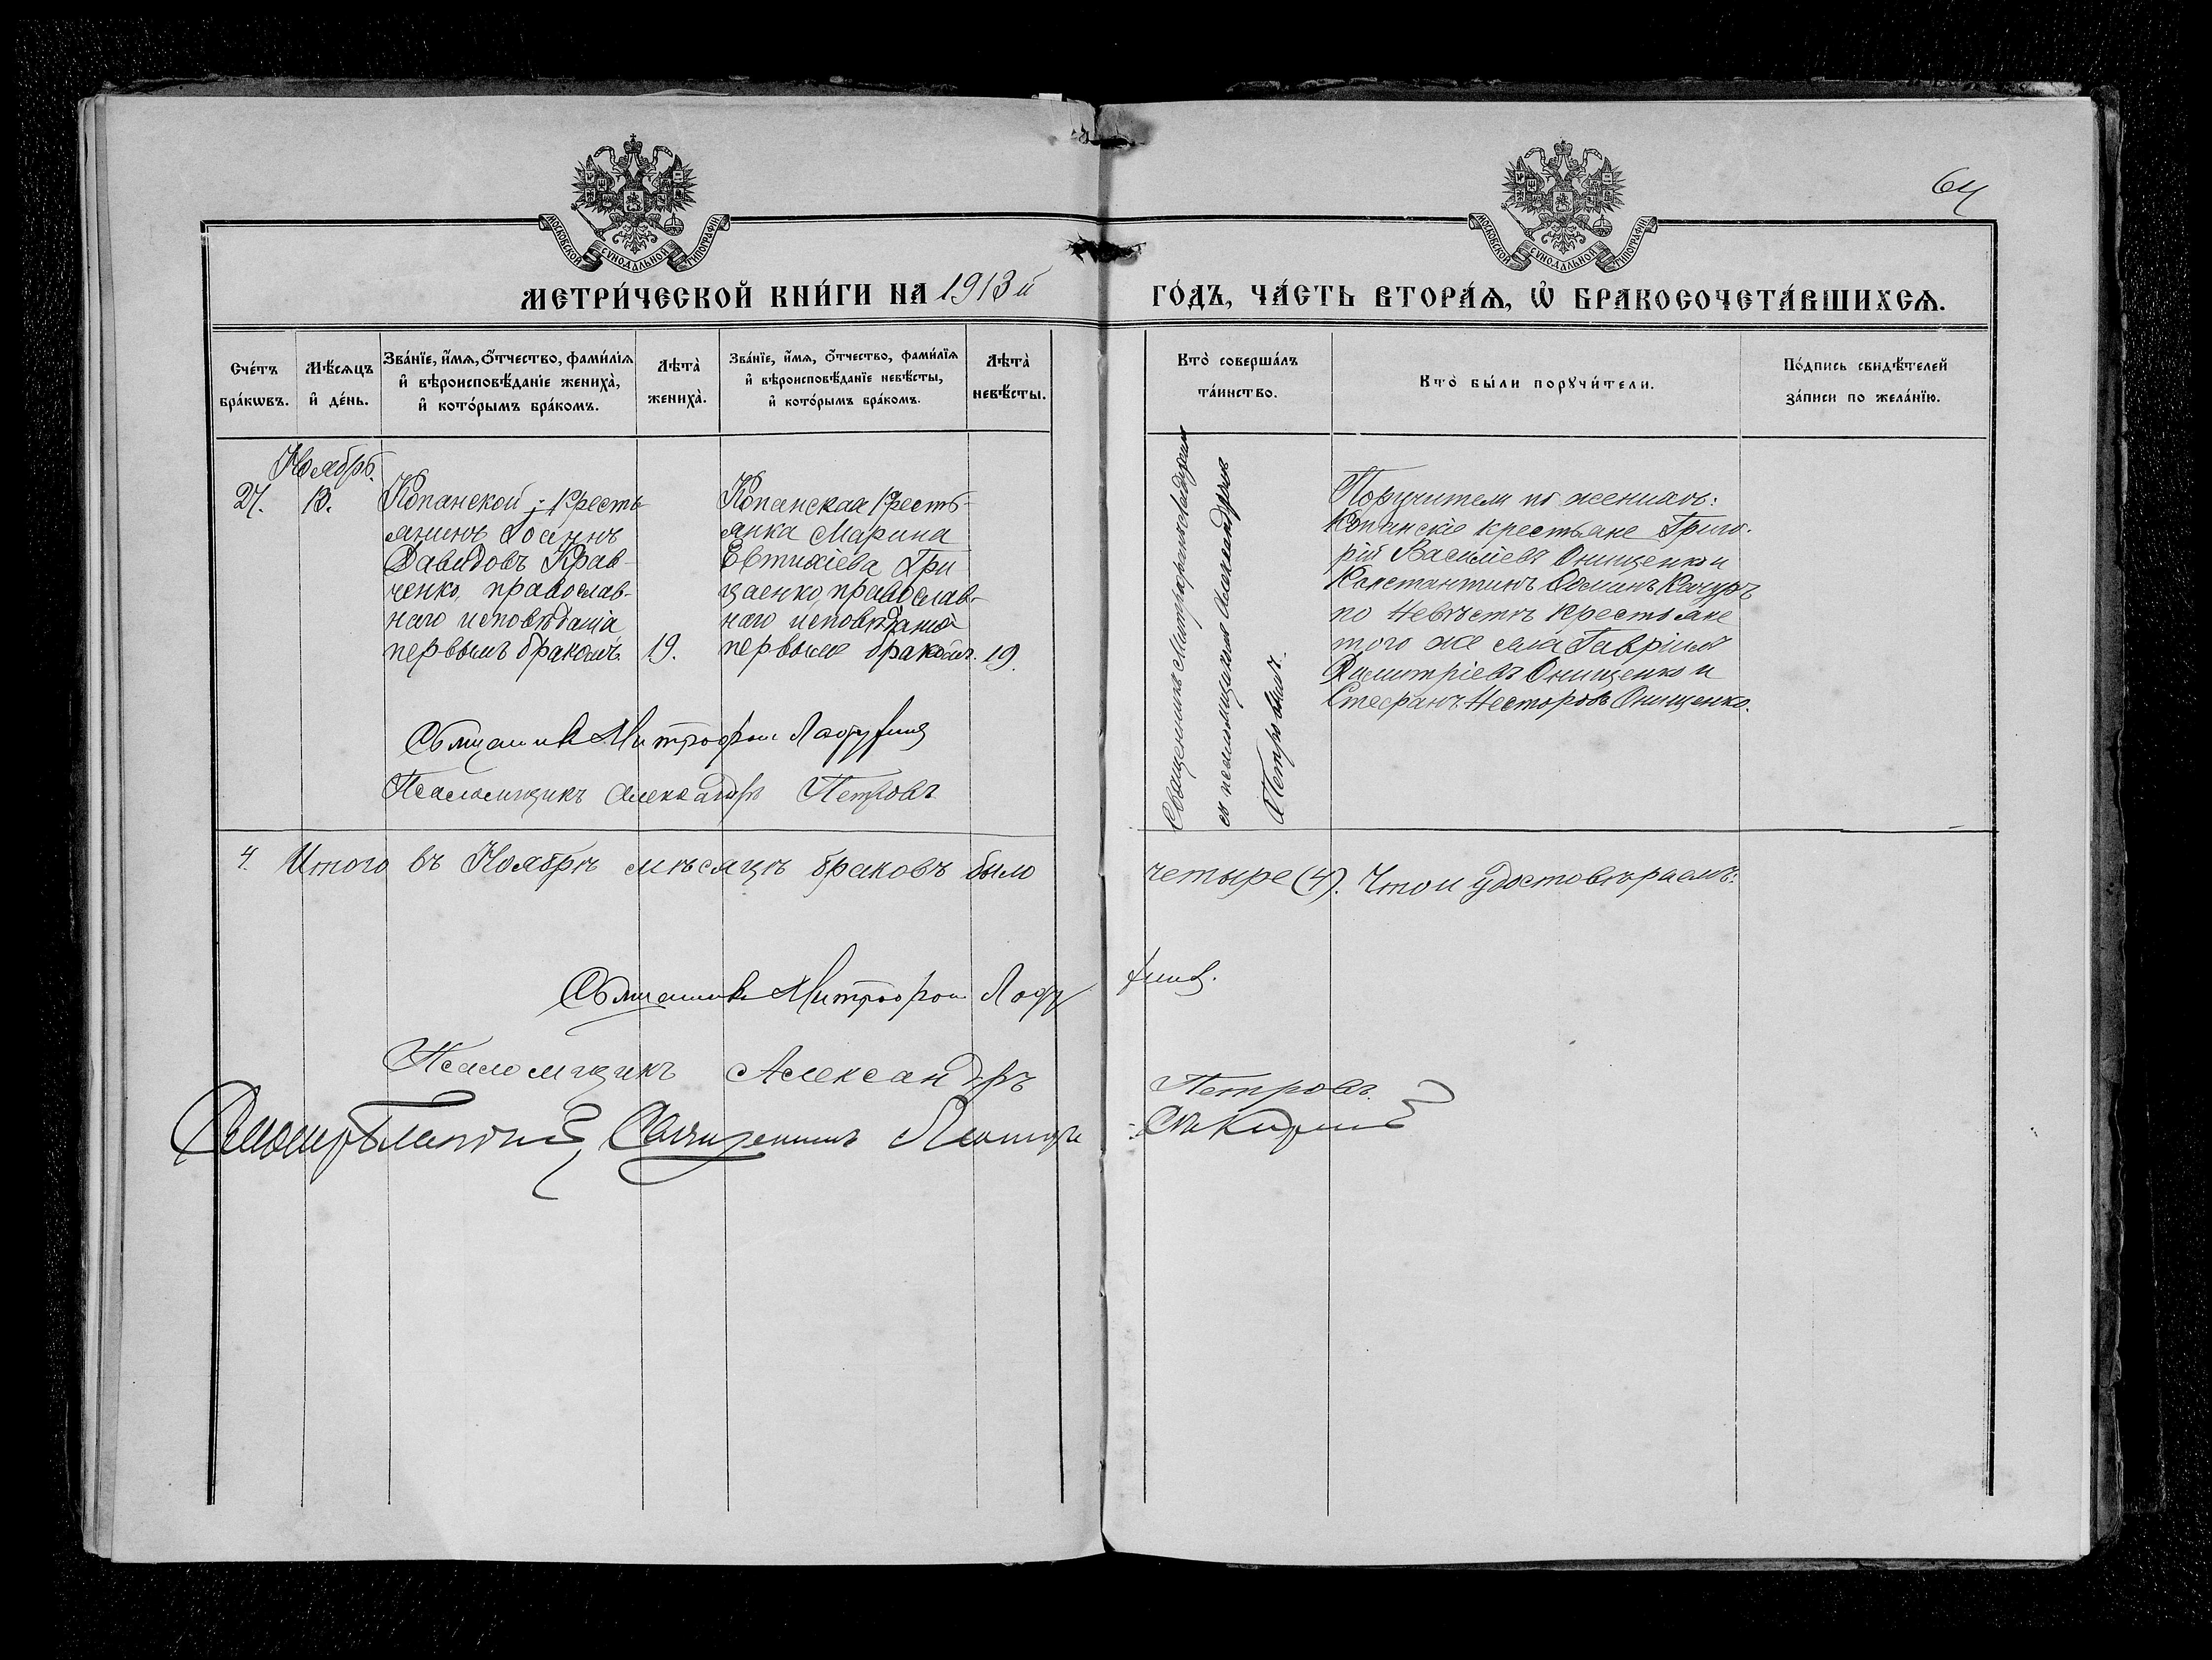 64
МОСКОВСКОЙ СѴНОДАЛЬНОЙ ТИПОГРАФІИ
МОСКОВСКОЙ СѴНОДАЛЬНОЙ ТИПОГРАФІИ
МЕТРИ́ЧЕСКОЙ КНИ́ГИ НА 1913 й
ГО́ДЪ, ЧА́СТЬ ВТОРА́Ѧ, Ѽ БРАКОСОЧЕТА́ВШИХСѦ.
Сче́тъ
бра́кѡвъ.
Мѣ́сѧцъ
и҆ де́нь.
Зва́нїе, и҆́мѧ, ѻ҆́тчество, фами́лїѧ
и҆ вѣроисповѣ́данїе жениха̀,
и҆ кото́рымъ бра́комъ.
Лѣта̀
жениха̀.
Зва́нїе, и҆́мѧ, ѻ҆́тчество, фами́лїѧ
и҆ вѣроисповѣ́данїе невѣ́сты,
и҆ кото́рымъ бра́комъ.
Лѣта̀
невѣ́сты.
Кто̀ соверша́лъ
та́инство.
Кто̀ бы́ли порꙋчи́тели.
По́дпись свидѣ́телей
за́писи по жела́нїю.
Ноябрь.
27.
13.
Копанской крестьянинъ Іоаннъ
Давидовъ Крав-
ченко, православ-
наго исповѣданія
первымъ бракомъ.
19.
Копанская кресть-
янка Марина
Евтихіева Гри
цаенко, православ-
наго исповѣданія
первымъ бракомъ.
19.
Священникъ Митрофанъ
съ псаломщикомъ Александромъ
Петровымъ.
Поручители по женихѣ:
Копанскіе крестьяне Григо-
рій Васильевъ Онищенко и
Константинъ Качуръ
по Невѣстѣ крестьяне
того же села Гавріилъ
Димитріевъ Онищенко и
Стефанъ Несторовъ Онищенко.
Священникъ Митрофанъ
Псаломщикъ Александръ Петровъ
4. Итого въ Ноябрѣ мѣсяцѣ браковъ было
четыре (4). Что и удостовѣряемъ:
Священникъ Митрофанъ
Псаломщикъ Александръ
Петровъ.
Священникъ